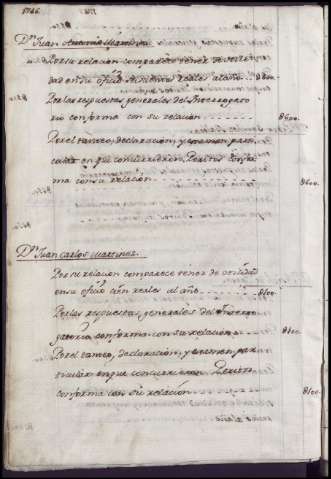 Dn Juan Antonio Martinez
Por su relacion comparece tener de utilidad
en su oficio reales al año 800.
Por las respuestas generales del Interrogato
rio conforma con su relacion 800.
Por el tanteo, declaracion, y examen par
cular en que concurrieron, Peritos confor
ma con su relacion 800.
Dn Juan Carlos Martinez.
Por su relacion comparece tener de utilidad
en su oficio reales al año 800.
Por las respuestas, generales del Interro
gatorio, conforma con su relacion 800.
Por el tanteo, declaracion, y examen par
ticular en que concurrieron Peritos
conforma con su relacion 800.